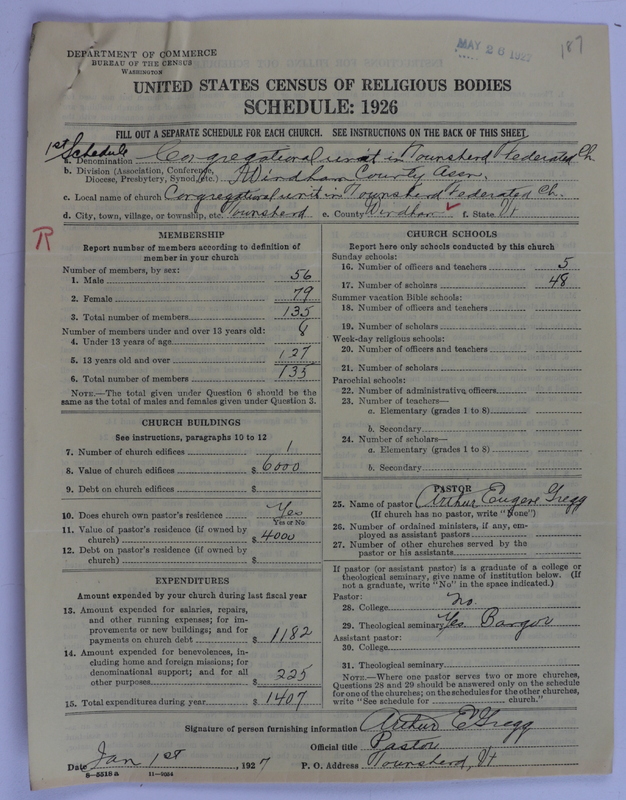 MAY 26 1927
187
DEPARTMENT OF COMMERCE
BUREAU OF THE CENSUS
WASHINGTON
UNITED STATES CENSUS OF RELIGIOUS BODIES
SCHEDULE: 1926
FILL OUT A SEPARATE SCHEDULE FOR EACH CHURCH. SEE INSTRUCTIONS ON THE BACK OF THIS SHEET
1st Schedule
a. Denomination Congregational unit in Townshend Federated Ch.
b. Division (Association, Conference, Diocese, Presbytery, Synod, etc.) Windham County Assn.
c. Local name of church Congregational unit in Townshend Federated Ch.
d. City, town, village, or township, etc. Townshend e. County Windham ✓ f. State Vt
R
MEMBERSHIP
Report number of members according to definition of
member in your church
Number of members, by sex:
1. Male 56
2. Female 79
3. Total number of members 135
Number of members under and over 13 years old:
4. Under 13 years of age 8
5. 13 years old and over 127
6. Total number of members 135
NOTE.—The total given under Question 6 should be the
same as the total of males and females given under Question 3.
CHURCH BUILDINGS
See instructions, paragraphs 10 to 12
7. Number of church edifices 1
8. Value of church edifices $ 6000
9. Debt on church edifices $
10. Does church own pastor's residence Yes
Yes or No
11. Value of pastor's residence (if owned by
church) $ 4000
12. Debt on pastor's residence (if owned by
church) $
EXPENDITURES
Amount expended by your church during last fiscal year
13. Amount expended for salaries, repairs,
and other running expenses; for im-
provements or new buildings; and for
payments on church debt $ 1182
14. Amount expended for benevolences, in-
cluding home and foreign missions; for
denominational support; and for all
other purposes $ 225
15. Total expenditures during year $ 1407
CHURCH SCHOOLS
Report here only schools conducted by this church
Sunday schools:
16. Number of officers and teachers 5
17. Number of scholars 48
Summer vacation Bible schools:
18. Number of officers and teachers
19. Number of scholars
Week-day religious schools:
20. Number of officers and teachers
21. Number of scholars
Parochial schools:
22. Number of administrative officers
23. Number of teachers—
a. Elementary (grades 1 to 8)
b. Secondary
24. Number of scholars—
a. Elementary (grades 1 to 8)
b. Secondary
PASTOR
25. Name of pastor Arthur Eugene Gregg
(If church has no pastor, write "None")
26. Number of ordained ministers, if any, em-
ployed as assistant pastors
27. Number of other churches served by the
pastor or his assistants
If pastor (or assistant pastor) is a graduate of a college or
theological seminary, give name of institution below. (If
not a graduate, write "No" in the space indicated.)
Pastor:
28. College No.
29. Theological seminary Yes. Bangor
Assistant pastor:
30. College
31. Theological seminary
NOTE.—Where one pastor serves two or more churches,
Questions 28 and 29 should be answered only on the schedule
for one of the churches; on the schedules for the other churches,
write "See schedule for church."
Signature of person furnishing information Arthur E Gregg
Official title Pastor
Date Jan 1st, 1927 P. O. Address Townshend, Vt
8—5518a 11—9034